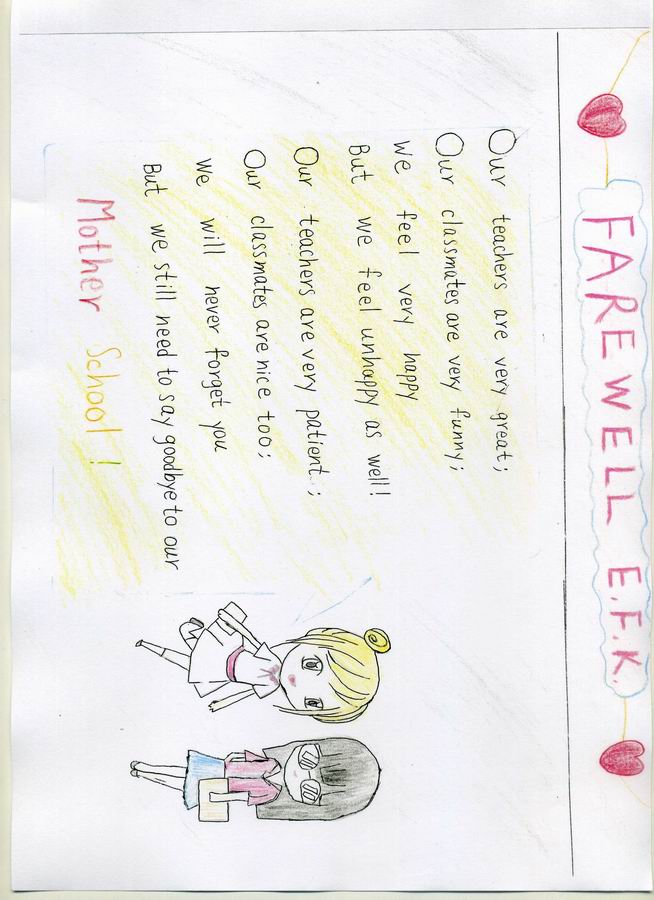 FAREWELL E.F.K.
Our teachers are very great;
Our classmates are very funny;
We feel very happy
But we feel unhappy as well!
Our teachers are very patient;
Our classmates are nice too;
We will never forget you
But we still need to say goodbye to our
Mother School!